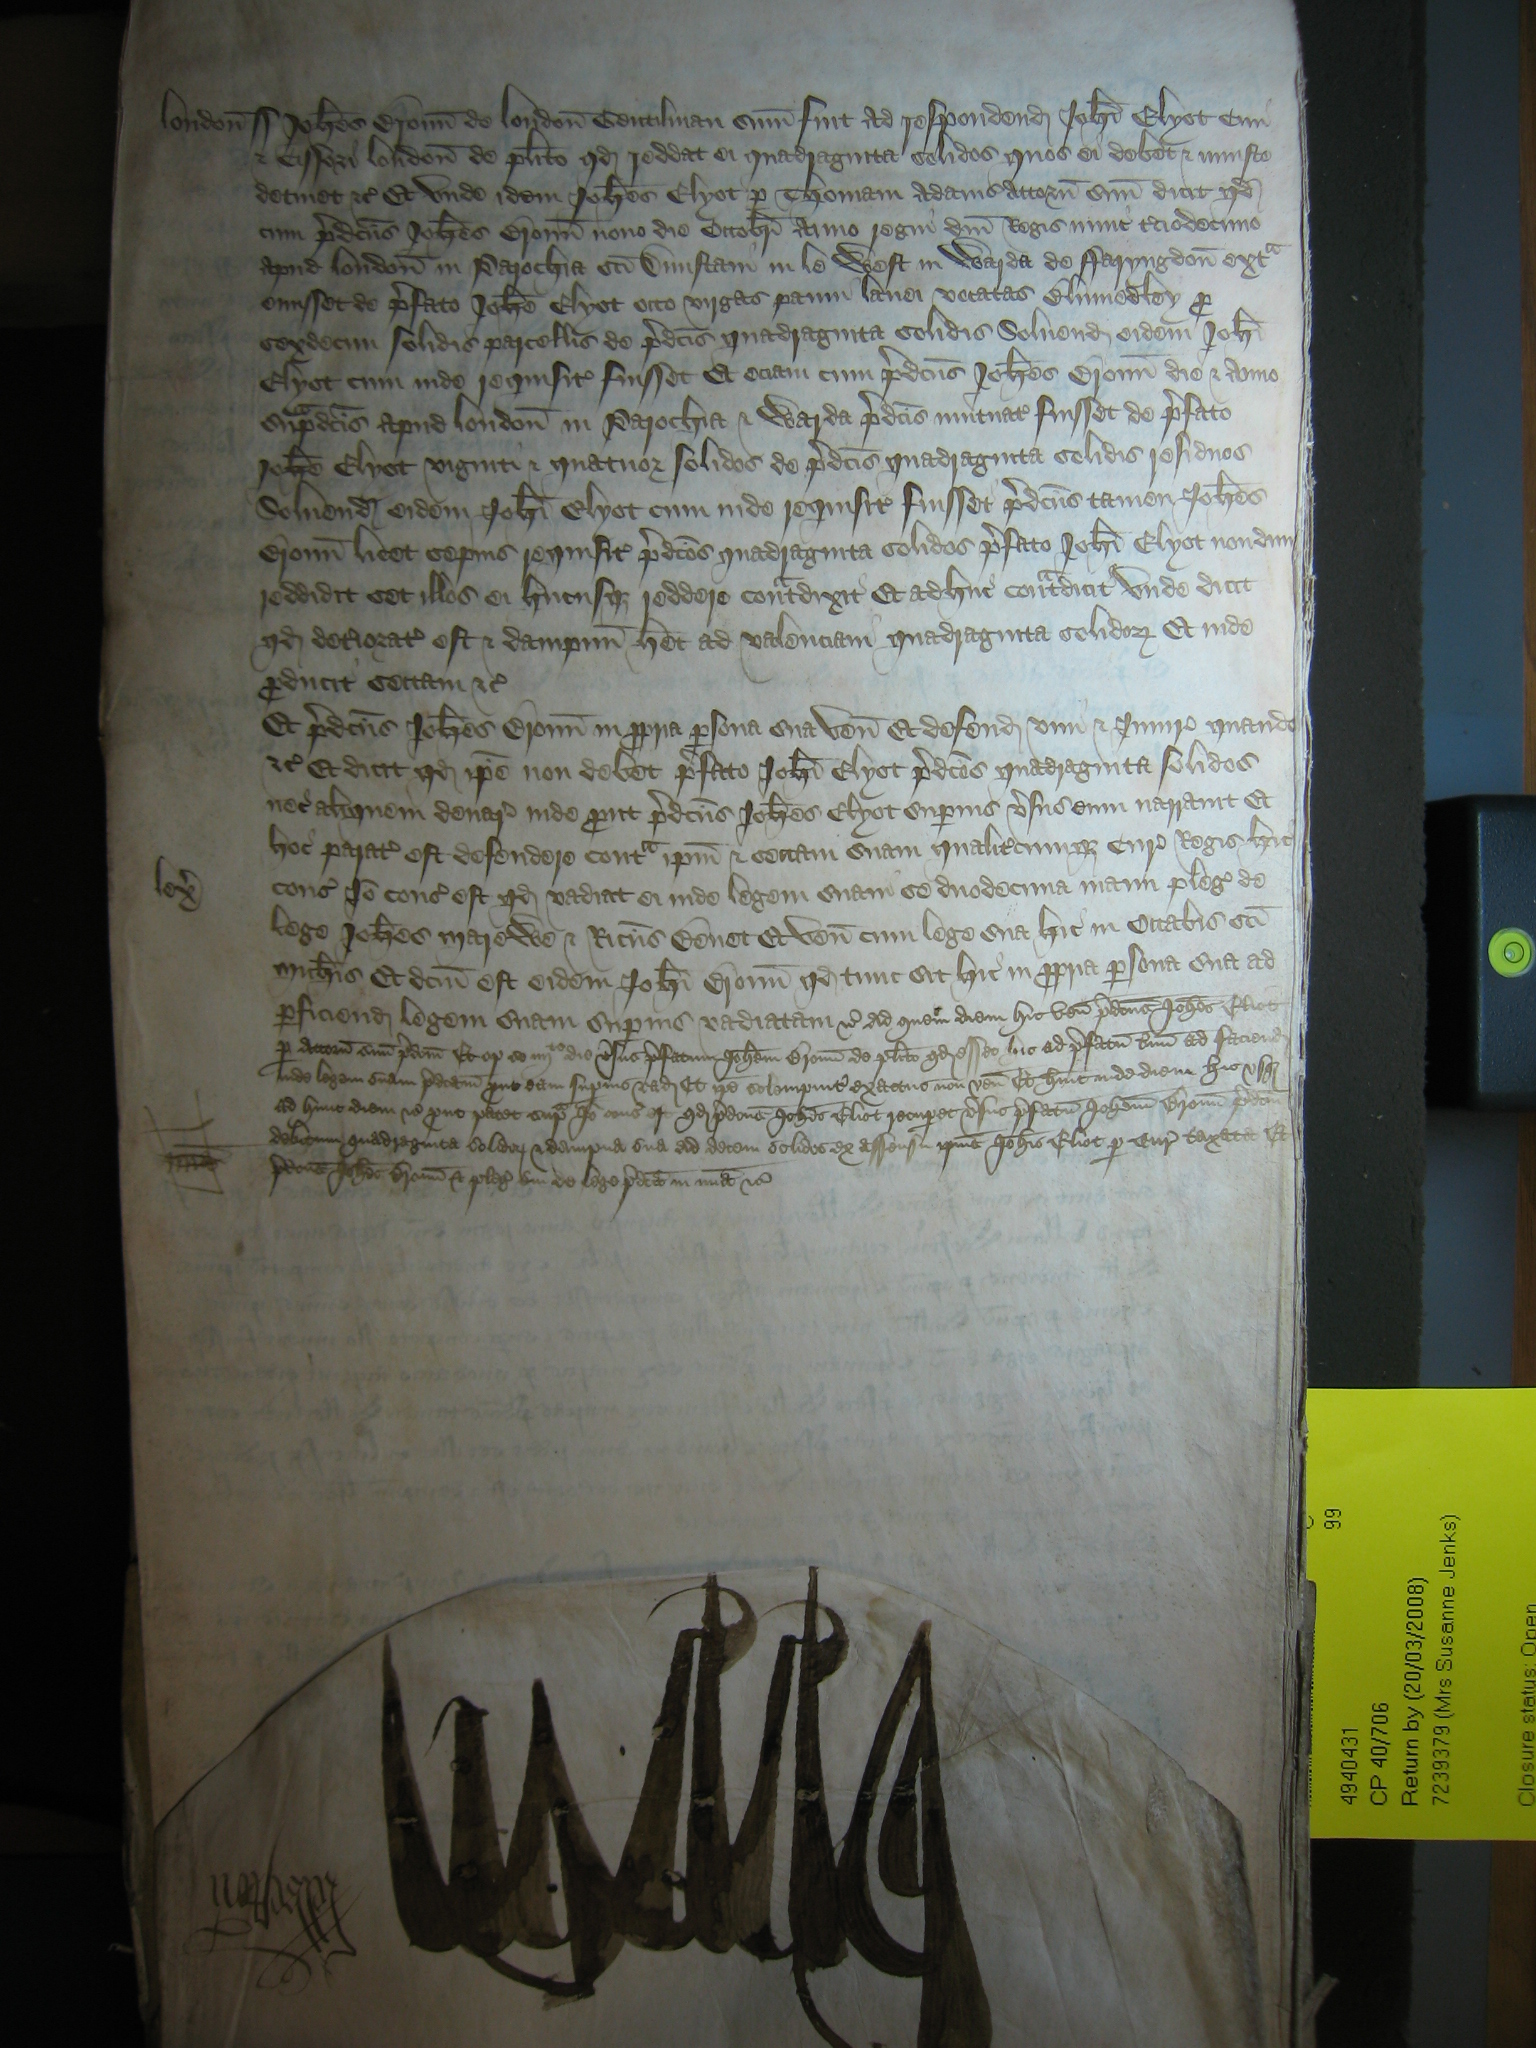 london̄ ss Joħes Broun̄ de london̄ Gentilman sum̄ fuit ad respondend Joħi Elyot Civi
& Cissori london̄ de pl̄ito qd reddat ei quadraginta solidos quos ei debet & iniuste
detinet &c Et unde idem Joħes Elyot p Thomam Adams Attorn̄ suū dicit qd
cum p̄dc̄us Joħes Broun̄ nono die Octobr̄ Anno regni dn̄i Regis nunc t̄ciodecimo
apud london̄ in Parochia sc̄i Dunstani in le West in Warda de ffaryngdon̄ ext̄
emisset de p̄fato Joħe Elyot octo virgas panni lanei vocatas
sexdecim solidis parcellis de p̄dc̄is quadraginta solidis Soluend eidem Joħi
Elyot cum inde requisit fuisset Et eciam cum p̄dc̄us Joħes Broun̄ die & Anno
sup̄dc̄is apud london̄ in Parochia & Warda p̄dc̄is mutuat fuisset de p̄fato
Joħe Elyot viginti & quatuor solidos de p̄dc̄is quadraginta solidis residuos
Soluend eidem Joħi Elyot cum inde requisit fuisset p̄dc̄us tamen Joħes
Broun̄ licet sepius requisit p̄dc̄os quadraginta solidos p̄fato Joħi Elyot nondum
reddidit set illos ei hucusq reddere cont̄dixit Et adhuc cont̄dicit Unde dicit
qd det̄iorat est & dampnū h̄et ad valenciam quadraginta solidor Et inde
p̄ducit sectam &c
Et p̄dc̄us Joħes Broun̄ in pp̄ria p̄sona sua ven̄ Et defend vim & Iniur quando
&c Et dicit qd ip̄e non debet p̄fato Joħi Elyot p̄dc̄os quadraginta solidos
nec aliquem denar inde p̄ut p̄dc̄us Joħes Elyot sup̄ius v̄sus eum narravit Et
hoc parat est defendere cont̄ ip̄m & sectam suam qualit̄cumq Cur Regis hic
lex
cons Iō cons est qd vadiat ei inde legem suam se duodecima manu pleg de
lege Joħes Marewe & Ric̄us Benet Et ven̄ cum lege sua hic in Octabis sc̄i
Mich̄is Et dc̄m est eidem Joħi Broun̄ qd tunc sit hic in pp̄ria p̄sona sua ad
p̄ficiend legem suam sup̄ius vadiatam &c Ad quem diem hic ven̄ p̄dc̄us Joħes Eliot
p Attorn̄ suū p̄dc̄m Et op se iiij<sup>to</sup> die v̄sus p̄fatum Joħem Broun̄ de pl̄ito qd esset hic ad p̄fatū t̄mū ad faciend
inde legem suam p̄dc̄am p̄ut eam sup̄ius vad Et ip̄e solempnit exactus non ven̄ Et huit inde diem hic usq
ad hunc diem &c p̄ut patet sup̄ Iō cons est qd p̄dc̄us Joħes Eliot recup̄et v̄sus p̄fatū Joħem Broun̄ p̄dc̄m
debitum quadraginta solidor & dampna sua ad decem solidos ex assensu ip̄ius Joħis Eliot p Cur taxata Et
p̄dc̄us Joħes Broun̄ & pleg sui de lege p̄dc̄a in mīa &c
99
4940431
CP 40/706
Return by (20/03/2008)
7239379 (Mrs Susanne Jenks)
Closure status: Open